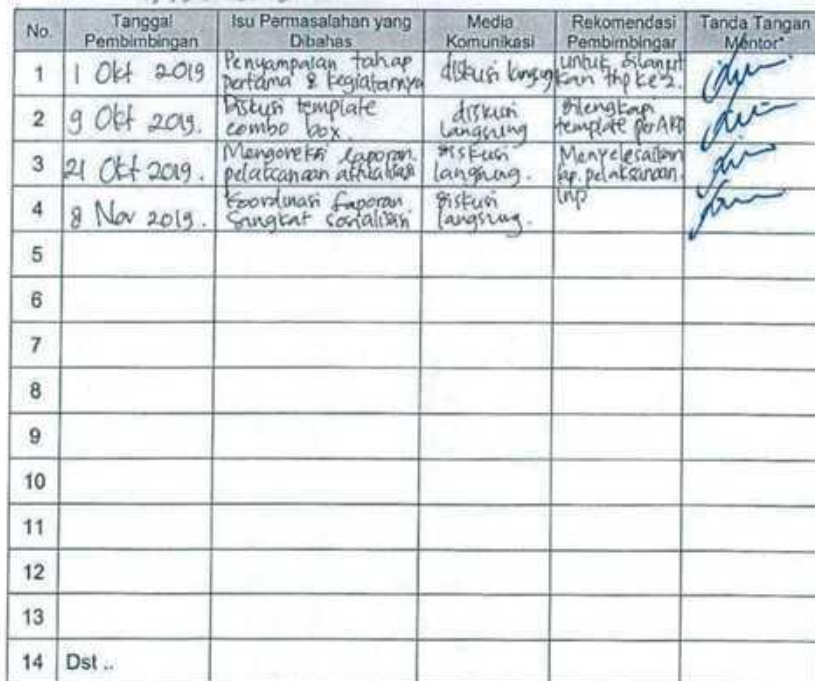 No. Tanggal Pembimbingan Isu Permasalahan yang Dibahas Media Komunikasi Rekomendasi Pembimbingan Tanda Tangan Mentor*
1 1 Okt 2019 Penyampaian tahap pertama & kegiatannya diskusi langsung untuk dilanjutkan thp ke 2.
2 9 Okt 2019. Diskusi template combo box. diskusi langsung dilengkapi template per AKD
3 21 Okt 2019. Mengoreksi laporan pelaksanaan aktualisasi diskusi langsung. Menyelesaikan lap. pelaksanaan.
4 8 Nov 2019. Koordinasi Laporan Singkat sosialisasi diskusi langsung.
5
6
7
8
9
10
11
12
13
14 Dst ..